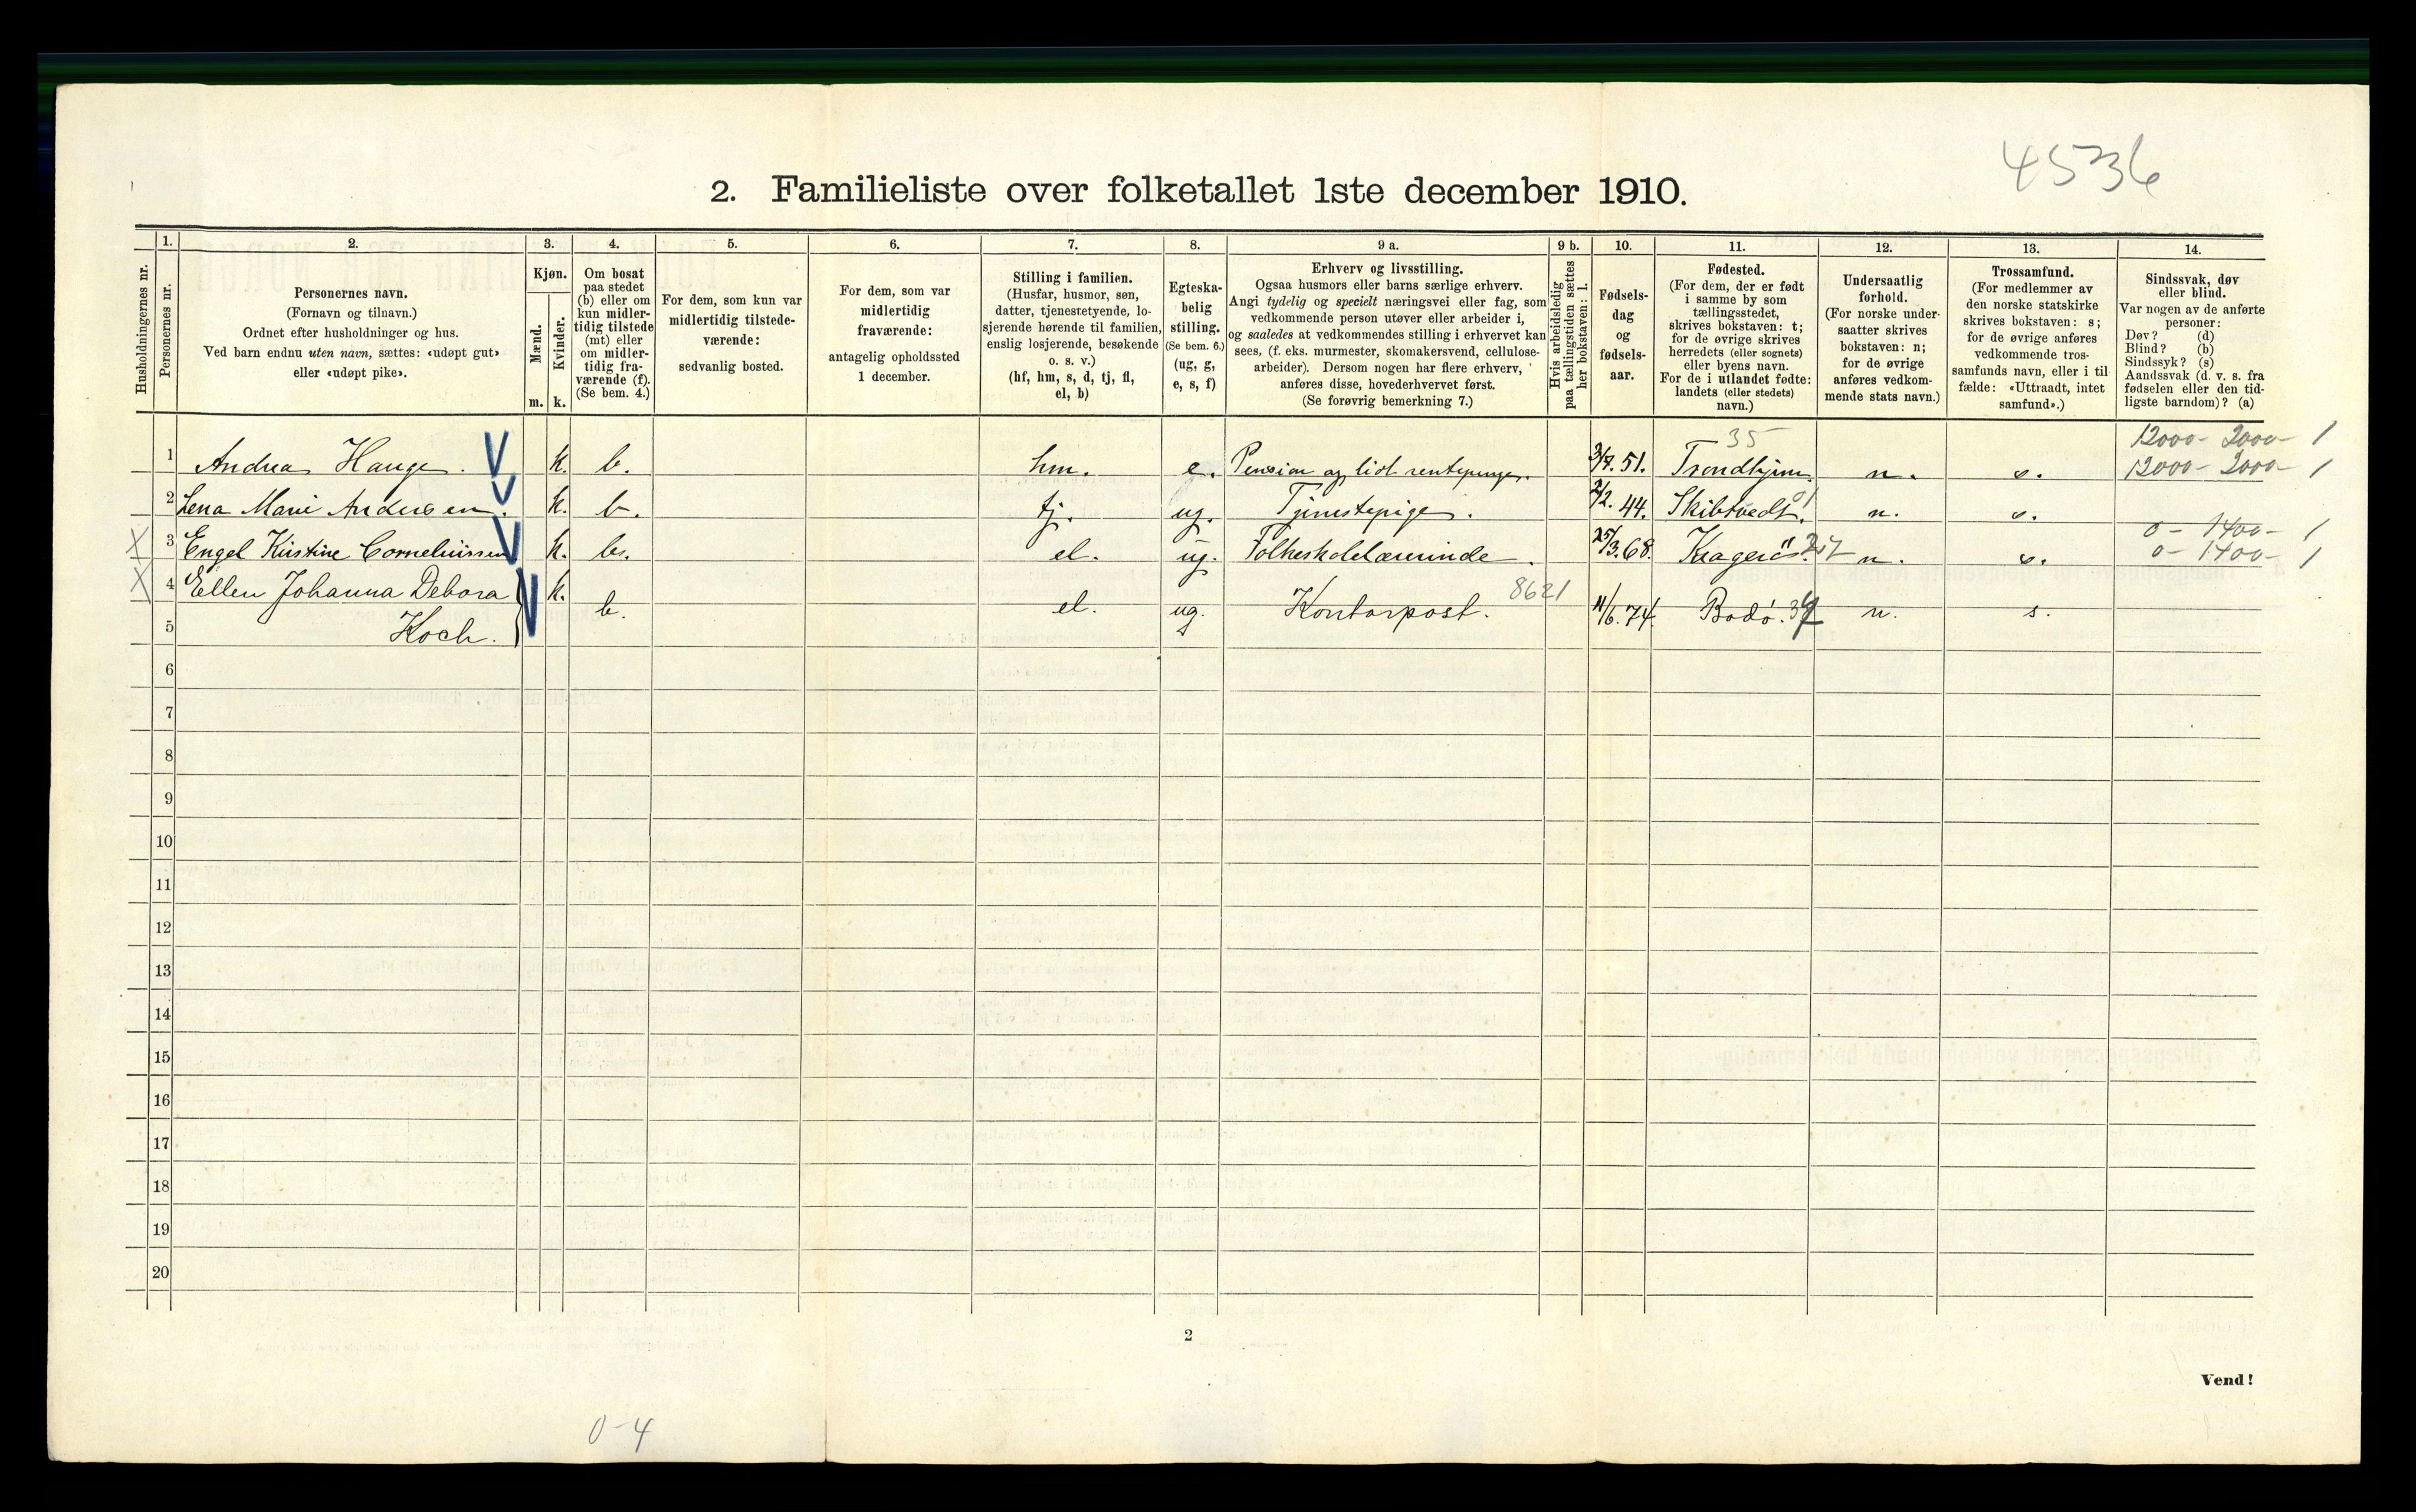 4536
2. Familieliste over folketallet 1ste december 1910.
Husholdningernes nr.
1.
Personernes nr.
2.
Personernes navn.
(Fornavn og tilnavn.)
Ordnet efter husholdninger og hus.
Ved barn endnu uten navn, sættes: «udøpt gut»
eller «udøpt pike».
3.
Kjøn.
Mænd.
Kvinder.
m. k.
4.
Om bosat
paa stedet
(b) eller om
kun midler-
tidig tilstede
(mt) eller
om midler-
tidig fra-
værende (f).
(Se bem. 4.)
5.
For dem, som kun var
midlertidig tilstede-
værende:
sedvanlig bosted.
6.
For dem, som var
midlertidig
fraværende:
antagelig opholdssted
1 december.
7.
Stilling i familien.
(Husfar, husmor, søn,
datter, tjenestetyende, lo-
sjerende hørende til familien,
enslig losjerende, besøkende
o. s. v.)
(hf, hm, s, d, tj, fl,
el, b)
8.
Egteska-
belig
stilling.
(Se bem. 6.)
(ug, g,
e, s, f)
9 a.
Erhverv og livsstilling.
Ogsaa husmors eller barns særlige erhverv.
Angi tydelig og specielt næringsvei eller fag, som
vedkommende person utøver eller arbeider i,
og saaledes at vedkommendes stilling i erhvervet kan
sees, (f. eks. murmester, skomakersvend, cellulose-
arbeider). Dersom nogen har flere erhverv,
anføres disse, hovederhvervet først.
(Se forøvrig bemerkning 7.)
9 b.
Hvis arbeidsledig
paa tællingstiden sættes
her bokstaven: l.
10.
Fødsels-
dag
og
fødsels-
aar.
11.
Fødested.
(For dem, der er født
i samme by som
tællingsstedet,
skrives bokstaven: t;
for de øvrige skrives
herredets (eller sognets)
eller byens navn.
For de i utlandet fødte:
landets (eller stedets)
navn.)
12.
Undersaatlig
forhold.
(For norske under-
saatter skrives
bokstaven: n;
for de øvrige
anføres vedkom-
mende stats navn.)
13.
Trossamfund.
(For medlemmer av
den norske statskirke
skrives bokstaven: s;
for de øvrige anføres
vedkommende tros-
samfunds navn, eller i til
fælde: «Uttraadt, intet
samfund».)
14.
Sindssvak, døv
eller blind.
Var nogen av de anførte
personer:
Døv? (d)
Blind? (b)
Sindssyk? (s)
Aandssvak (d. v. s. fra
fødselen eller den tid-
ligste barndom)? (a)
35 12000- 2000- 1
1 Andrea Hauge. V k. b. hm. e. Pension og lidt rentepenge. 3/7. 51. Trondhjem n. s. 12000- 2000- 1
2 Lena Marie Andersen. V k. b. tj. ug. Tjenestepige. 2/2. 44. Skibtvedt. 01 n. s.
0- 1400- 1
X 3 Engel Kirstine Corneliussen V k. b. el. ug. Folkeskolelærerinde. 25/3. 68. Kragerö. 257 n. s. 0- 1400- 1
X 4 Ellen Johanna Debora V k. b. el. ug. Kontorpost. 8621 11/6. 74. Bodö. n. s.
5 Koch.
6
7
8
9
10
11
12
13
14
15
16
17
18
19
20
2
Vend!
0-4